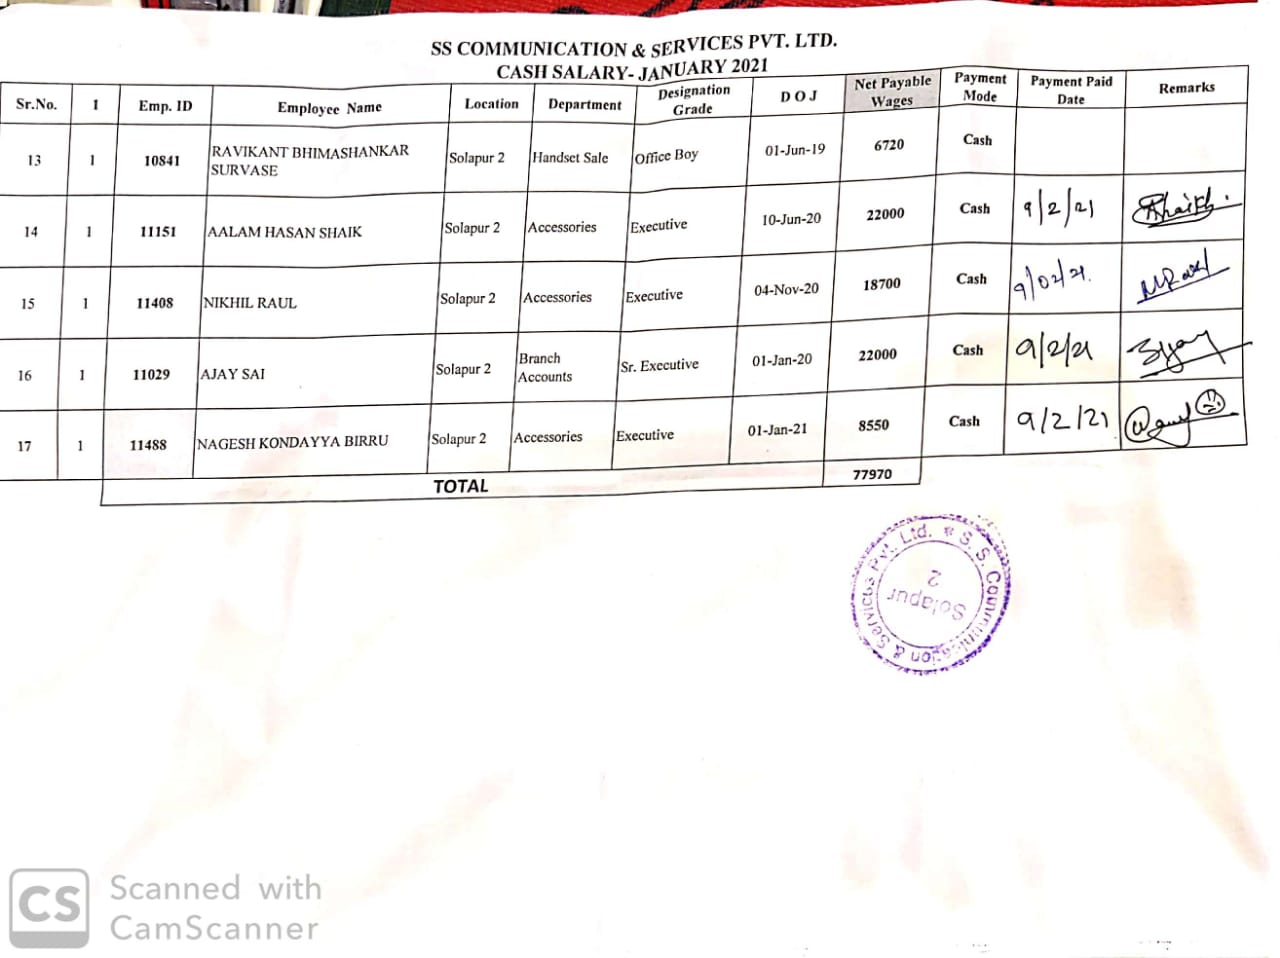 SS COMMUNICATION & SERVICES PVT. LTD.
CASH SALARY- JANUARY 2021
Sr.No. 1 Emp. ID Employee Name Location Department Designation Grade D O J Net Payable Wages Payment Mode Payment Paid Date Remarks
13 1 10841 RAVIKANT BHIMASHANKAR SURVASE Solapur 2 Handset Sale Office Boy 01-Jun-19 6720 Cash
14 1 11151 AALAM HASAN SHAIK Solapur 2 Accessories Executive 10-Jun-20 22000 Cash 9/2/21
15 1 11408 NIKHIL RAUL Solapur 2 Accessories Executive 04-Nov-20 18700 Cash 9/02/21.
16 1 11029 AJAY SAI Solapur 2 Branch Accounts Sr. Executive 01-Jan-20 22000 Cash 9/2/21
17 1 11488 NAGESH KONDAYYA BIRRU Solapur 2 Accessories Executive 01-Jan-21 8550 Cash 9/2/21
TOTAL 77970
S. S. Communication & Services Pvt. Ltd.
Solapur
2
CS Scanned with
CamScanner